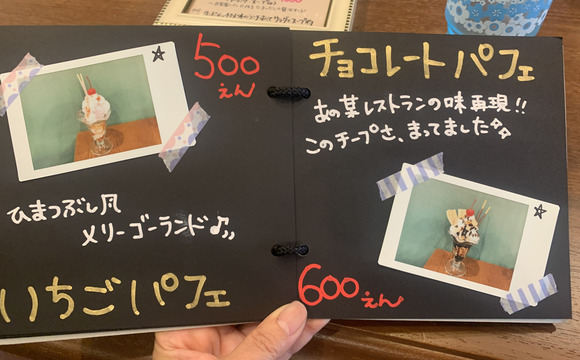 500
えん
ひまつぶし風
メリーゴーランド♪
いちごパフェ
チョコレートパフェ
あの某レストランの味再現!!
このチープさ、まってました
600えん